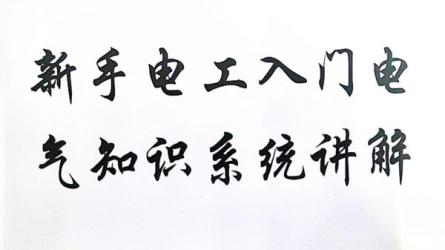 新手电工入门电
气知识系统讲解